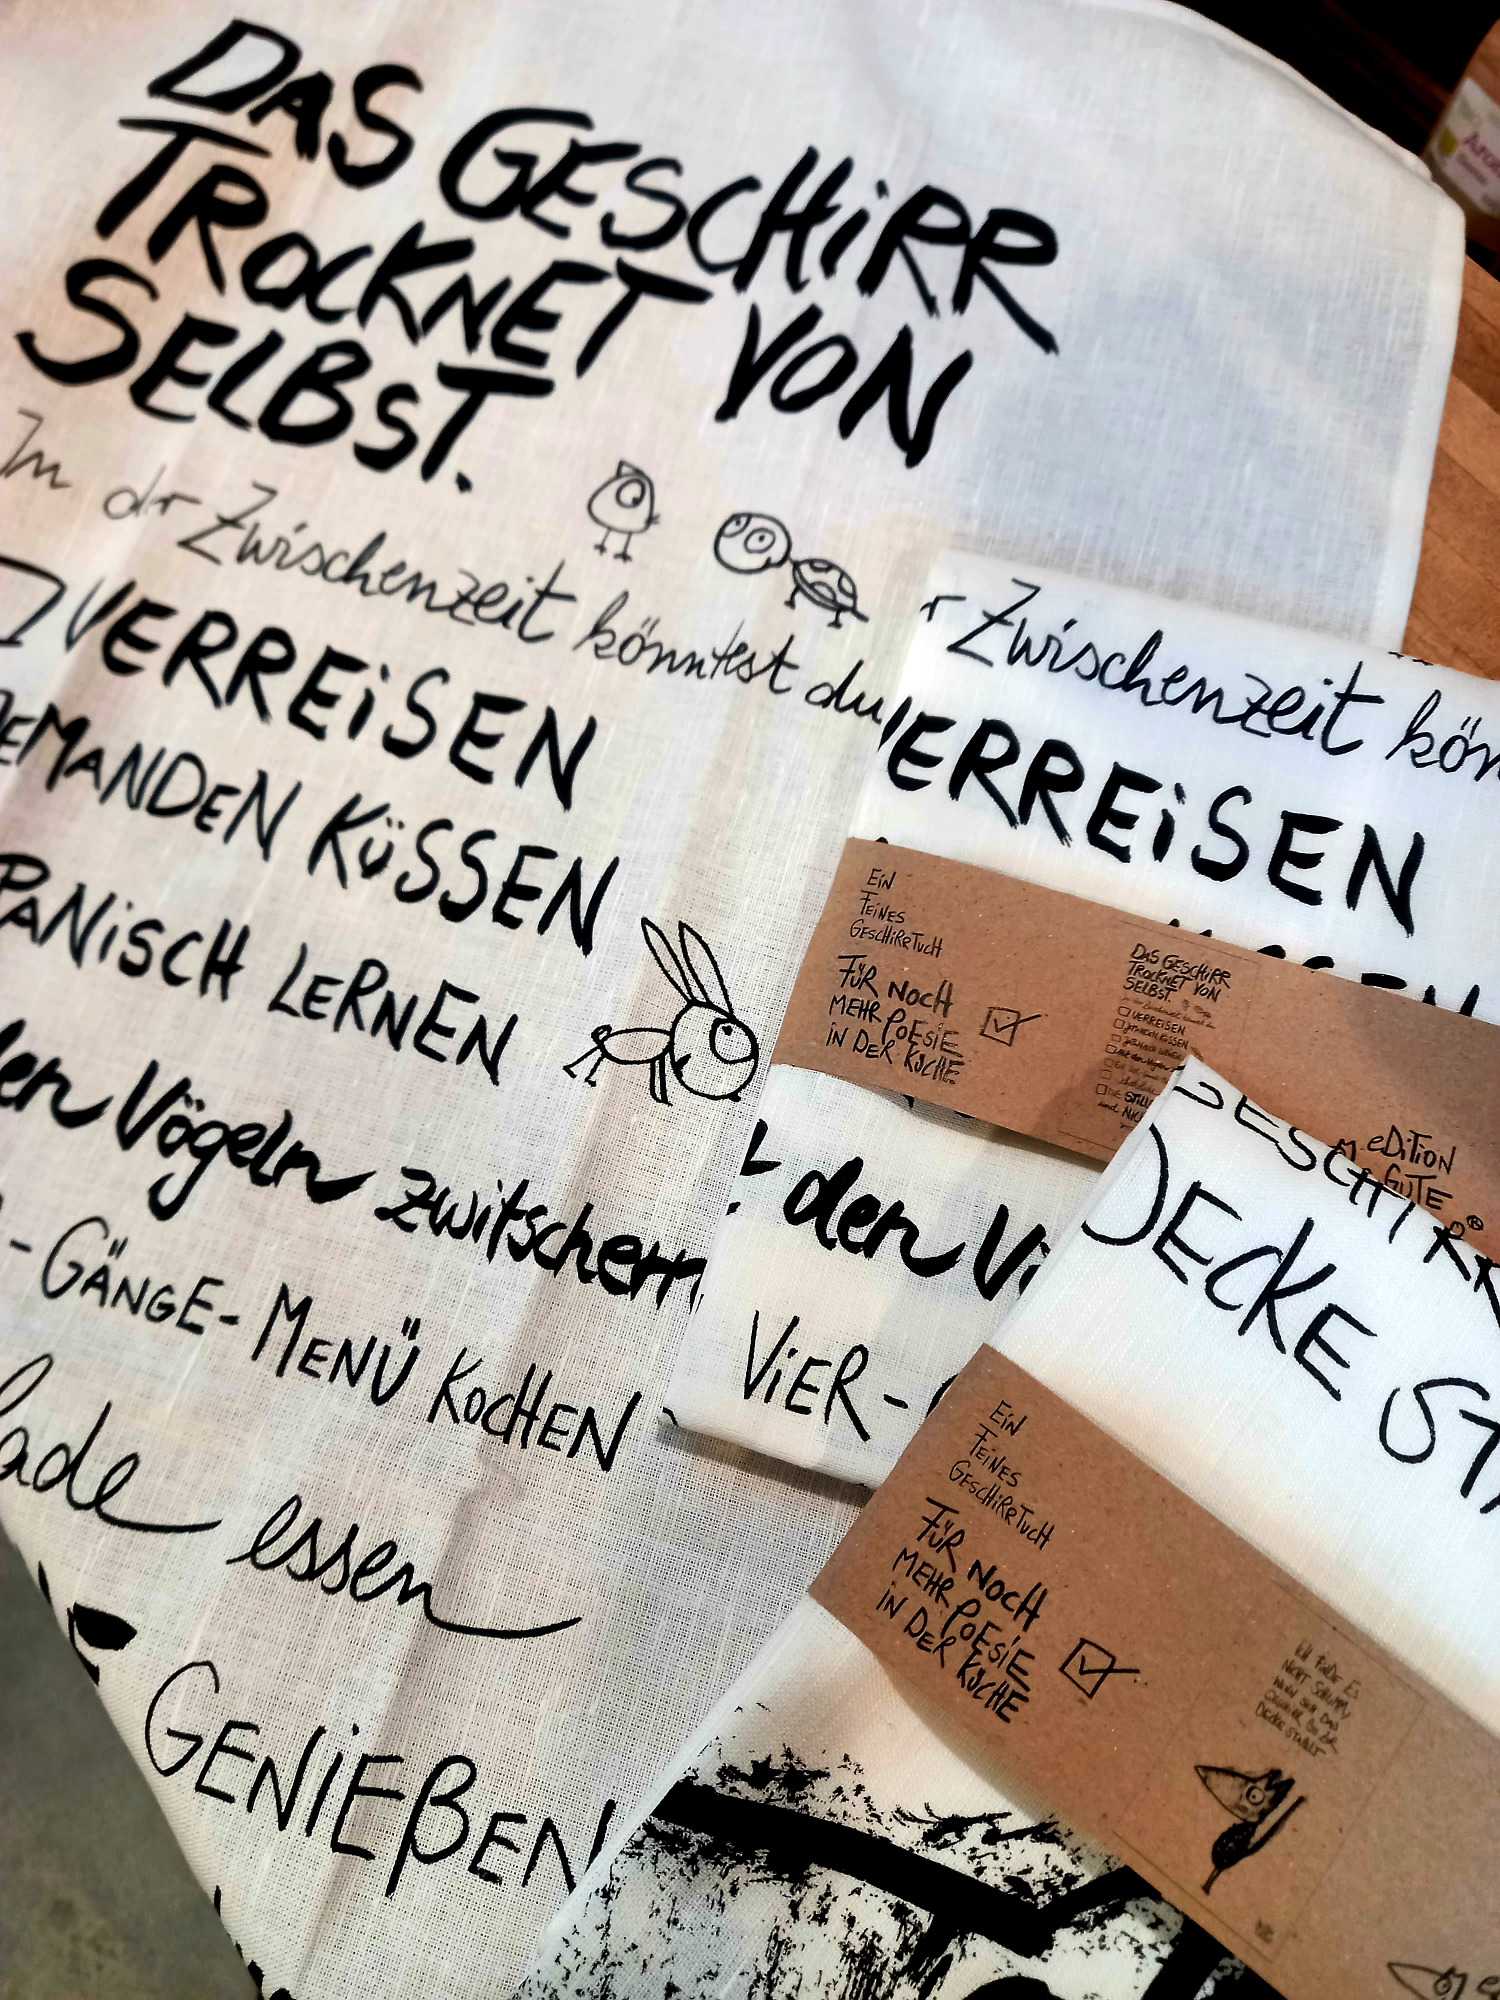 DAS GESCHIRR
TROCKNET VON
SELBST.
In der Zwischenzeit könntest du
VERREISEN
JEMANDEN KÜSSEN
PANISCH LERNEN
den Vögeln zwitschern
-GÄNGE-MENÜ KOCHEN
lade essen
GENIEßEN
r Zwischenzeit kön
VERREISEN
EIN
FEINES
GESCHIRRTUCH
FÜR NOCH
MEHR POESIE
IN DER KÜCHE
DAS GESCHIRR
TROCKNET VON
SELBST.
VERREISEN
JEMANDEN KÜSSEN
eDITION
GUTE
t den Vö
VIER-G
GESCHIRR
DECKE ST
EIN
FEINES
GESCHIRRTUCH
FÜR NOCH
MEHR POESIE
IN DER KÜCHE
ICH FINDE ES
NICHT SCHLIMM
WENN SICH DAS
GESCHIRR BIS ZUR
DECKE STAPELT